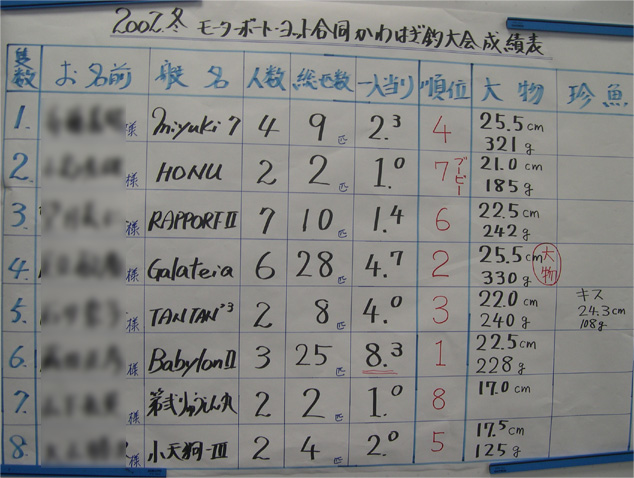 2002.冬 モーターボート・ヨット合同かわはぎ釣大会成績表
隻数 お名前 般名 人数 総匹数 一人当り 順位 大物 珍魚
1. 様 miyuki 7 4 9匹 2.3 4 25.5cm 321g
2. 様 HONU 2 2匹 1.0 7 ブービー 21.0cm 185g
3. 様 RAPPORT-II 7 10匹 1.4 6 22.5cm 242g
4. 様 Galateia 6 28匹 4.7 2 25.5cm 330g 大物
5. 様 TANTAN°3 2 8匹 4.0 3 22.0cm 240g キス 24.3cm 108g
6. 様 Babylon II 3 25匹 8.3 1 22.5cm 228g
7. 様 2 2匹 1.0 8 17.0cm
8. 様 小天狗-III 2 4匹 2.0 5 17.5cm 125g